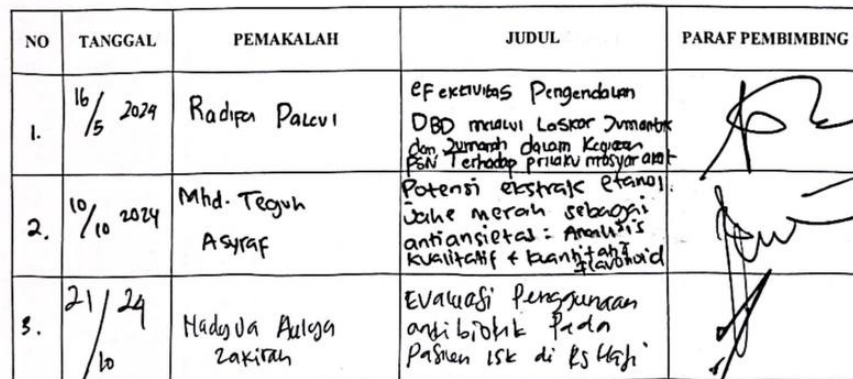 NO TANGGAL PEMAKALAH JUDUL PARAF PEMBIMBING
1. 16/5 2024 Radifa Palevi
efektivitas Pengendalian
DBD melalui Laskar Jumantik
dan Jumarah dalam Kegiatan
PSN Terhadap prilaku masyarakat
2. 10/10 2024 Mhd. Teguh
Asyraf
Potensi ekstrak etanol
Jahe merah sebagai
antiansietas: Analisis
kualitatif & kuantitatif
flavonoid
3. 21/10 24
Zakirah
Evaluasi Penggunaan
antibiotik Pada
Pasien ISK di RS Haji